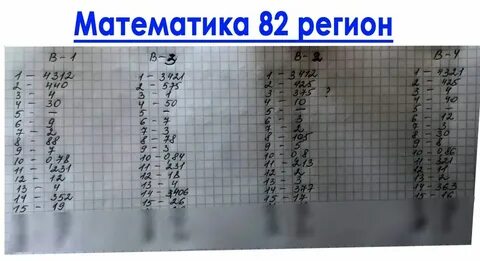 Математика 82 регион
В-1
1 - 4312
2 - 440
3 - 4
4 - 30
5 -
6 - 9
7 - 2
8 - 88
9 - 7
10 - 0,78
11 - 231
12 - 12
13 - 4
14 - 352
15 - 19
В-3
1 - 3421
2 - 575
3 - 1
4 - 50
5 -
6 - 7
7 - 3
8 - 78
9 - 3
10 - 0,84
11 - 231
12 - 18
13 - 4
14 - 3406
15 - 26
В-2
1 - 3412
2 - 425
3 - 375 ?
4 - 10
5 -
6 - 2
7 - 2
8 - 105
9 - 5
10 - 0,8
11 - 213
12 - 2
13 - 3
14 - 347
15 - 17
В-4
1 - 4321
2 - 425
3 - 4
4 - 40
5 -
6 - 12
7 - 3
8 - 30
9 - 8
10 - 0,86
11 - 321
12 - 11
13 - 2
14 - 363
15 - 16